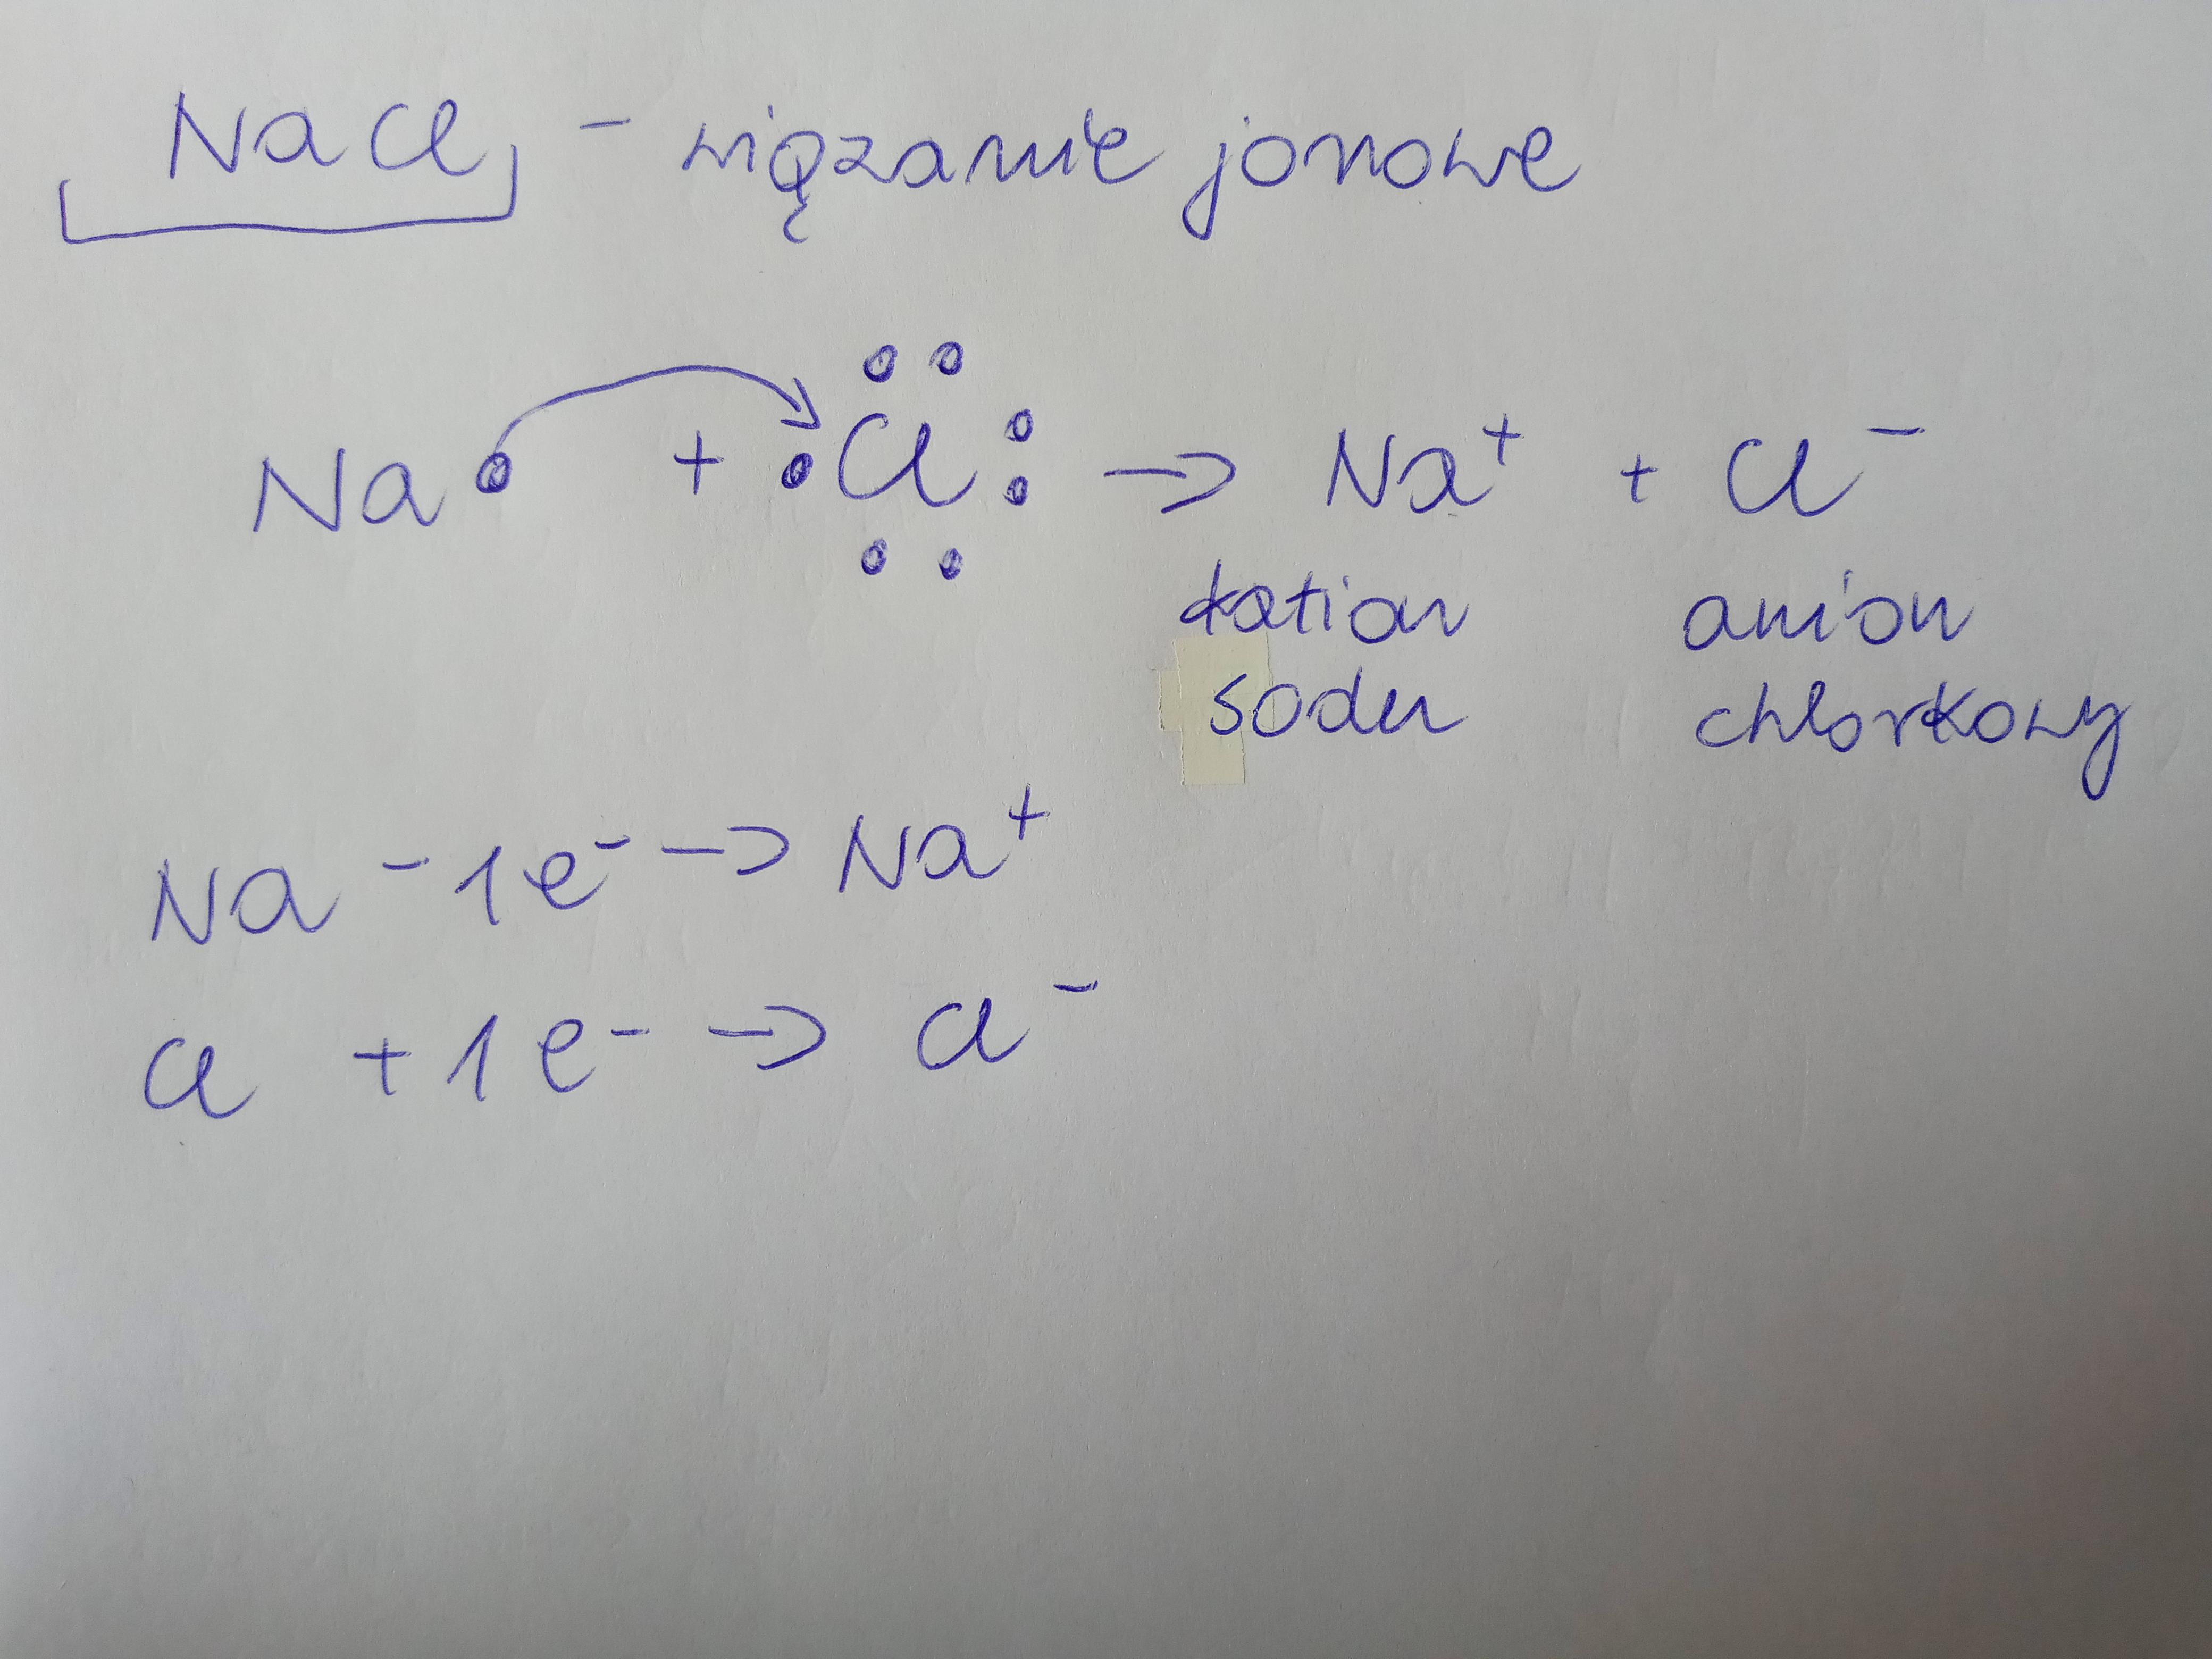 NaCl - wiązanie jonowe
Na• + •Cl: → Na⁺ + Cl⁻
kation anion
sodu chlorkowy
Na - 1e⁻ → Na⁺
Cl + 1e⁻ → Cl⁻